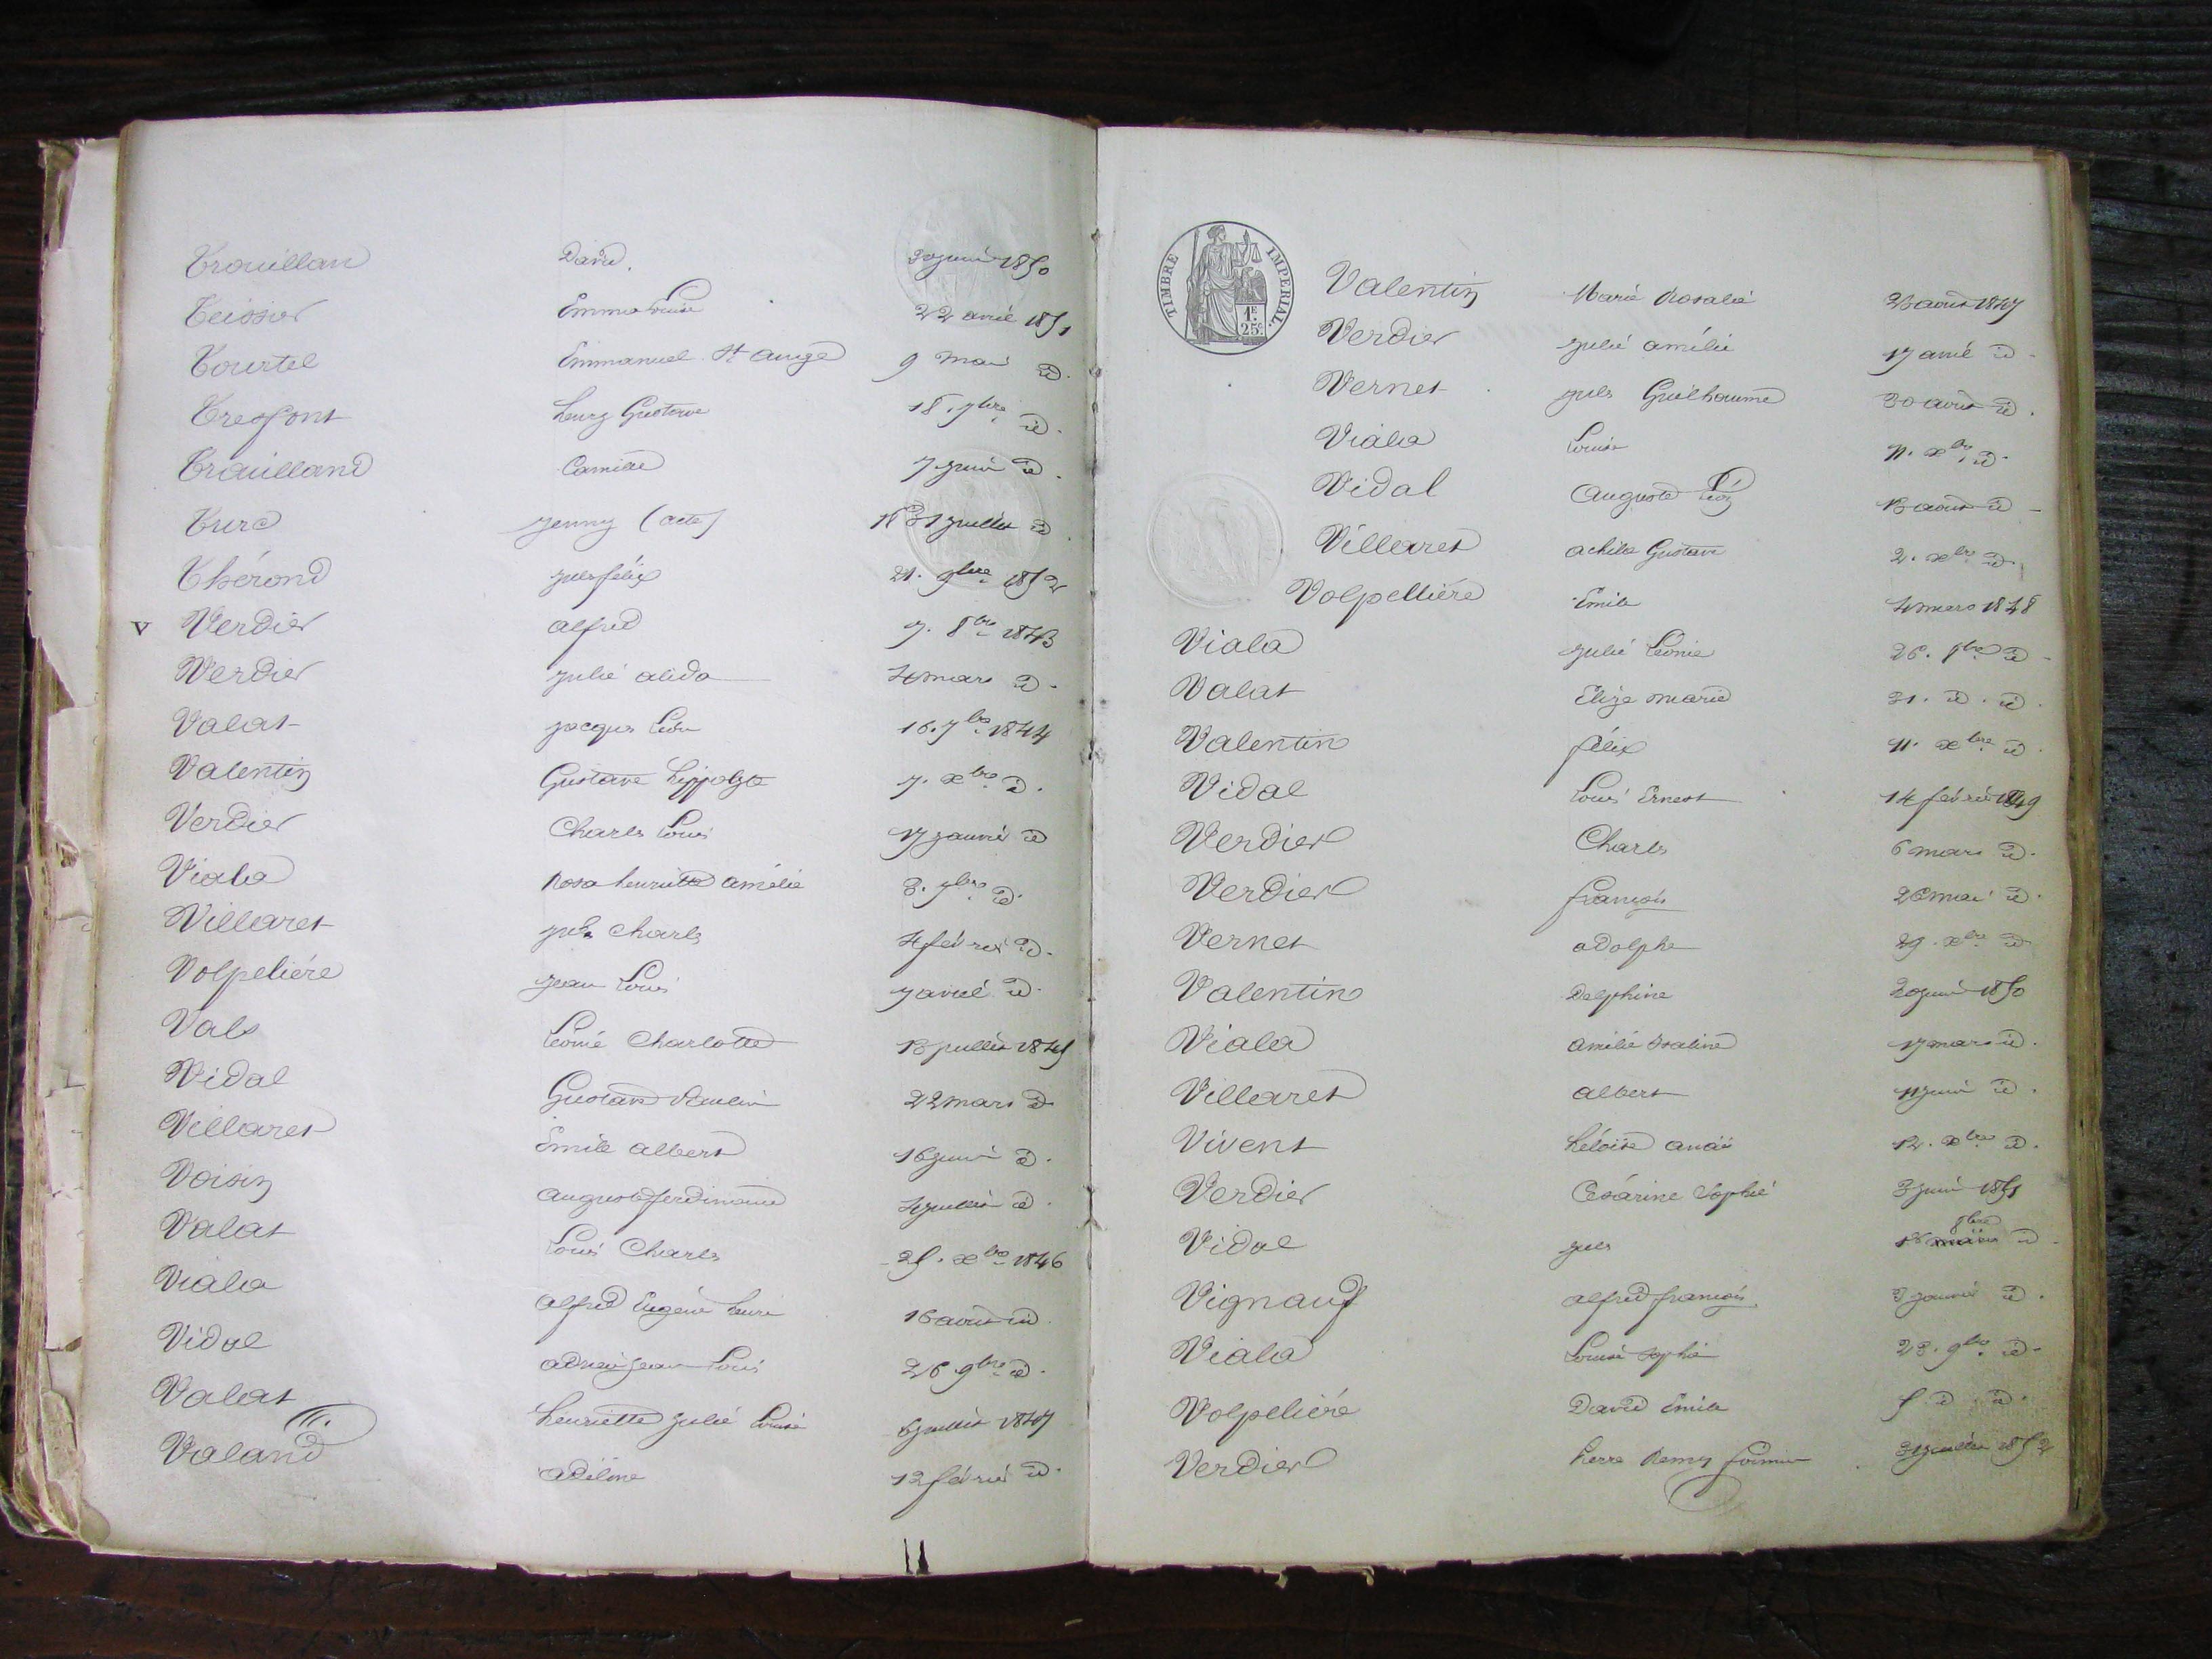 Trouillan David. 30 juin 1850
Teissier Emma Louise 22 avril 1851
Tourtel Emmanuel St ange 9 mai id.
Tresfont henry Gustave 18. 7bre id.
Trouilland Camille 7 juin id.
Turc Jenny (acte) 31 juillet id
Thérond jules félix 21. 9bre 1852
V Verdier alfred 7. 8bre 1843
Verdier julie alida 4 mars id.
Valat jacques Léon 16. 7bre 1844
Valentin Gustave hippolyte 7. xbre id.
Verdier Charles Louis 17 janvier id
Viala Rosa henriette amélie 3. 7bre id.
Villaret jules Charles 4 février id.
Volpeliére jean Louis 7 avril id.
Vals Léonie Charlotte 13 juillet 1845
Vidal Gustave 22 mars id
Villaret Emile albert 16 juin id.
Voisin auguste ferdinand 4 juillet id.
Valat Louis Charles 25. xbre 1846
Viala alfred Eugène henri 16 aout id.
Vidal adrien jean Louis 26 9bre id.
Valat henriette julie Louise 6 juillet 1847
Valand adeline 12 février id.
TIMBRE IMPERIAL.
1F. 25C.
Valentin Marie Rosalie 23 aout 1847
Verdier julie amélie 17 avril id.
Vernet jules Guilhaume 30 avril id.
Viala Louise 11. xbre id.
Vidal auguste Léon 13 aout id
Villaret achille Gustave 2. xbre id.
Volpelliére Emile 4 mars 1848
Viala julie Léonie 26. id
Valat Elize marie 31. id. id.
Valentin félix 11. xbre id.
Vidal Louis Ernest 14 février 1849
Verdier Charles 6 mars id.
Verdier françois 26 mai id.
Vernet adolphe 29. xbre id
Valentin Delphine 20 juin 1850
Viala amélie 17 mars id.
Villaret albert 11 juin id.
Vivent héloise anaïs 12. xbre id.
Verdier Césarine Sophie 3 juin 1851
Vidal jules 18 8bre id
Vignauf alfred françois 3 janvier id.
Viala Louise Sophie 23. 9bre id.
Volpeliére David Emile 5 id id.
Verdier Pierre Remy firmin 31 juillet 1852